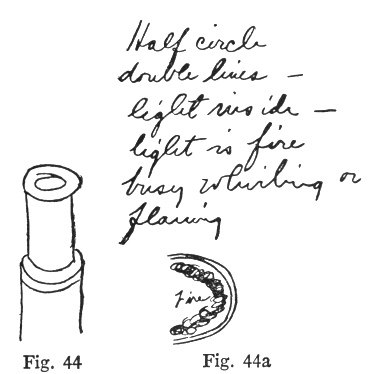 Half circle
double lines –
light inside –
light is fire
busy whirling or
flaming
Fire
Fig. 44
Fig. 44a